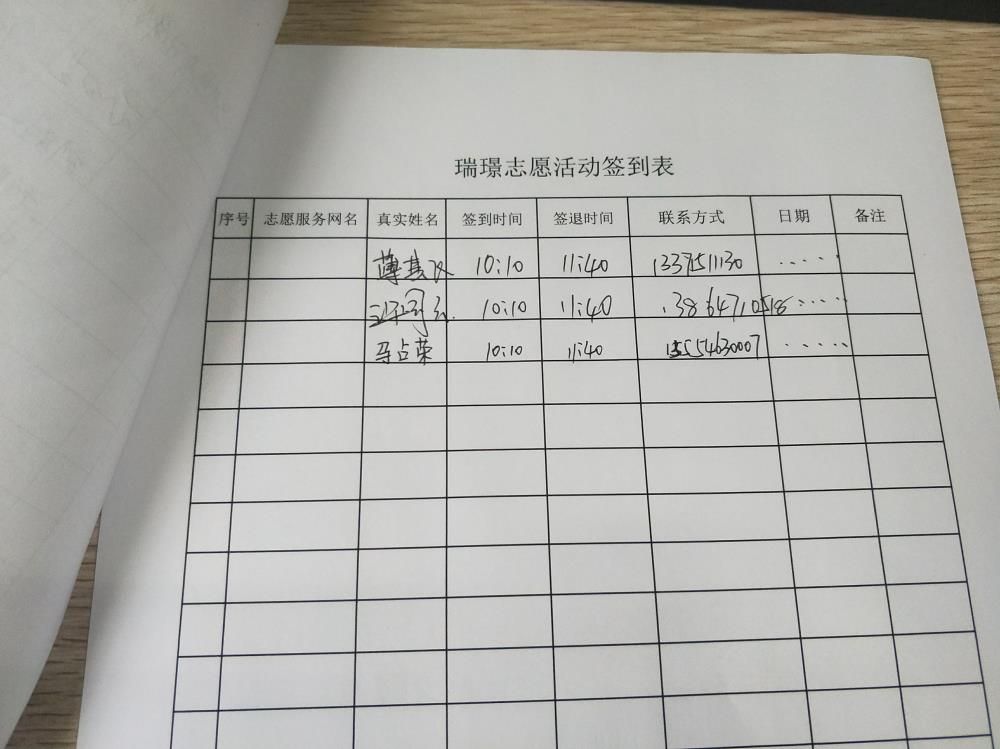 瑞璟志愿活动签到表
序号 志愿服务网名 真实姓名 签到时间 签退时间 联系方式 日期 备注
10:10 11:40 .....
10:10 11:40 13864710518 .....
马占荣 10:10 11:40 15554630007 .....